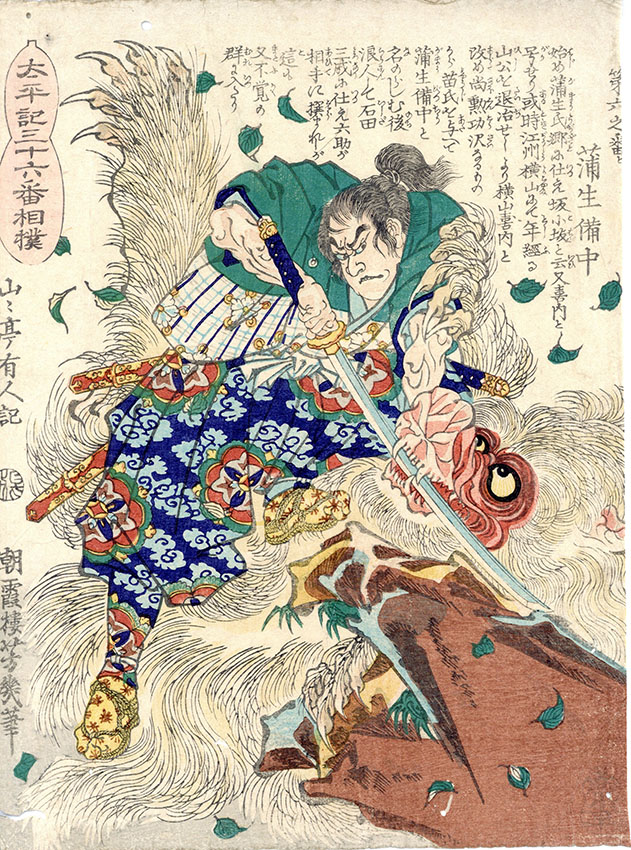 第六之番
蒲生備中
始め蒲生氏郷に仕え坂小坂と云又喜内とも
号せり或時江州横山にて年經る
山公を退治せしより横山喜内と
改め尚勲功沢なるもの
から苗氏を与へて
蒲生備中と
名のらしむ後
浪人して石田
三成に仕え六助が
相手に撰
這は
又不覚の
群に入たり
太平記三十六番相撲
山々亭有人記
朝霞楼芳幾筆